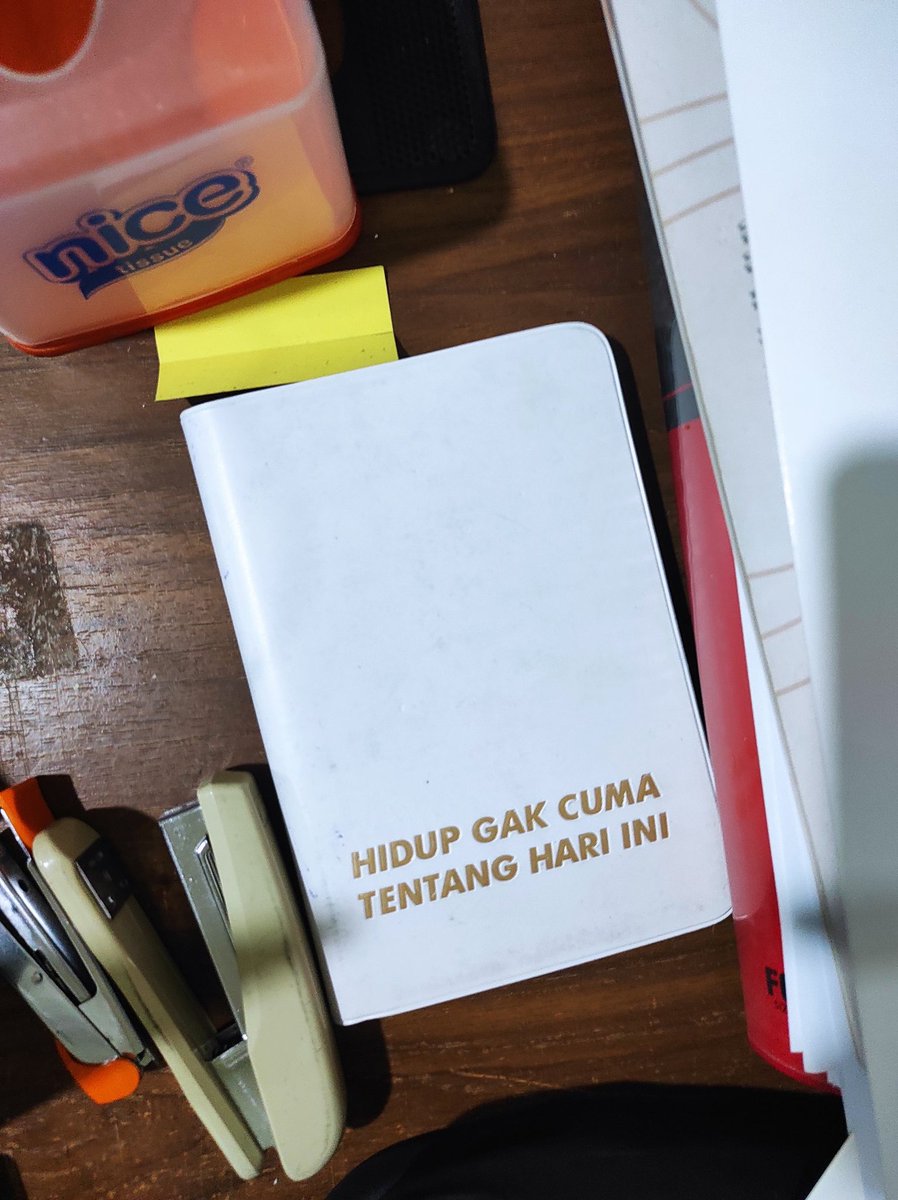 nice
tissue
HIDUP GAK CUMA
TENTANG HARI INI